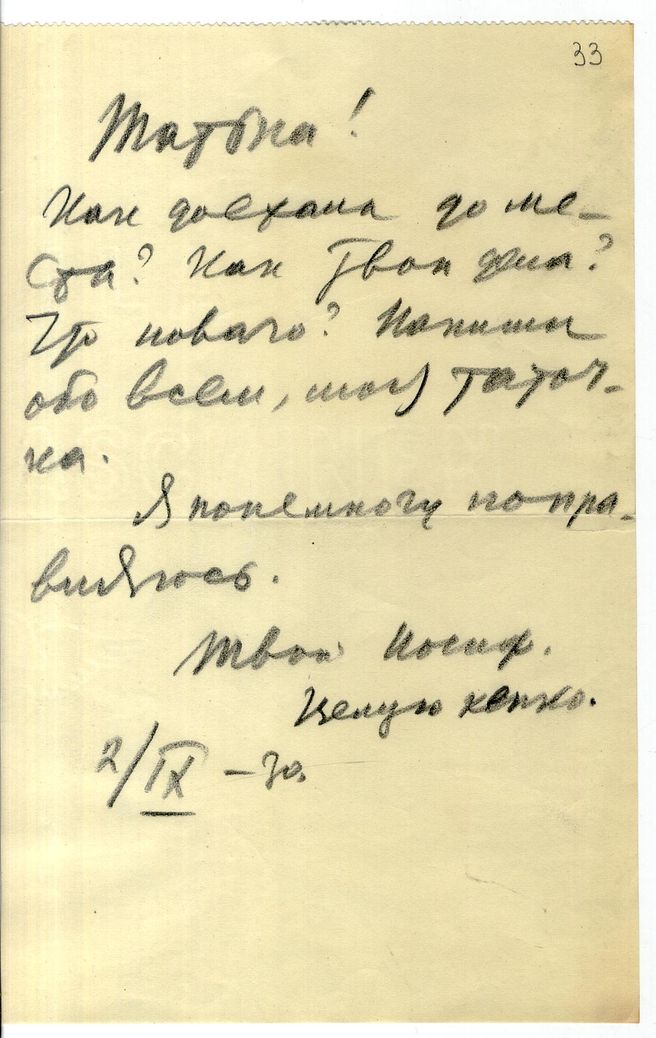 33
Татька!
Как доехала до ме-
ста? Как твои дела?
Что нового? Напиши
обо всем, моя Таточ-
ка.
Я понемногу попра-
вляюсь.
Твой Иосиф.
Целую кепко.
2/IX – 30.